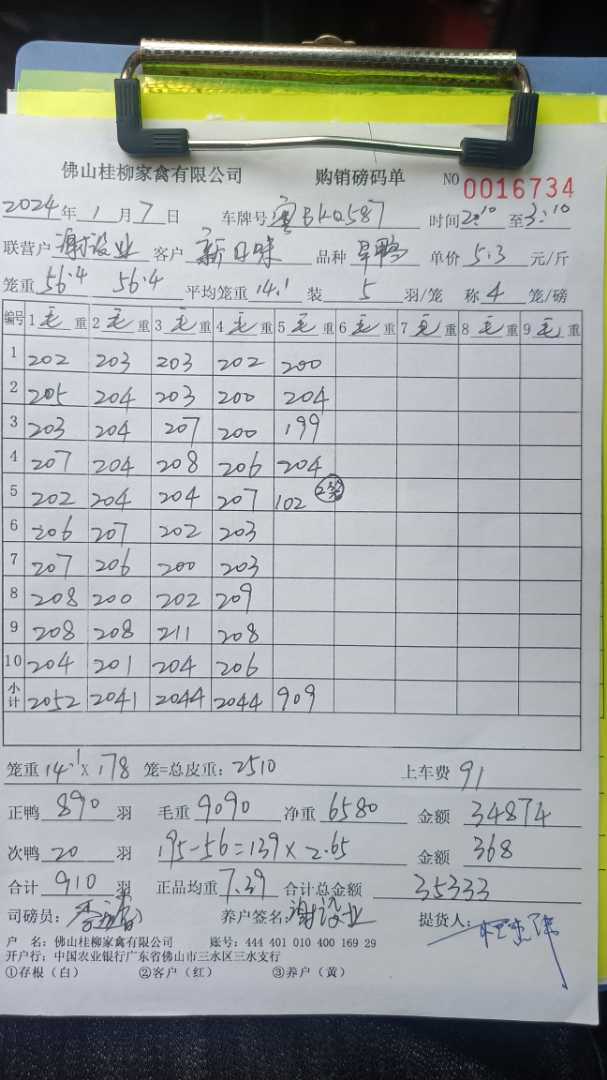 佛山桂柳家禽有限公司 购销磅码单 NO 0016734
2024年 1月7日 车牌号 粤BK0587 时间2:10至3:10
联营户 谢设业 客户 新口味 品种 旱鸭 单价 5.3 元/斤
笼重 56.4 56.4 平均笼重 14.1 装 5 羽/笼 称 4 笼/磅
编号 1毛重 2毛重 3毛重 4毛重 5毛重 6毛重 7毛重 8毛重 9毛重
1 202 203 203 202 200
2 205 204 203 200 204
3 203 204 207 200 199
4 207 204 208 206 204
5 202 204 204 207 102 2笼
6 206 207 202 203
7 207 206 200 203
8 208 200 202 209
9 208 208 211 208
10 204 201 204 206
小计 2052 2041 2044 2044 909
笼重 14.1 X 178 笼=总皮重: 2510 上车费 91
正鸭 890 羽 毛重 9090 净重 6580 金额 34874
次鸭 20 羽 195-56=139×2.65 金额 368
合计 910 羽 正品均重 7.39 合计总金额 35333
司磅员: 养户签名: 谢设业 提货人:
户 名: 佛山桂柳家禽有限公司 账号: 444 401 010 400 169 29
开户行: 中国农业银行广东省佛山市三水区三水支行
①存根（白） ②客户（红） ③养户（黄）